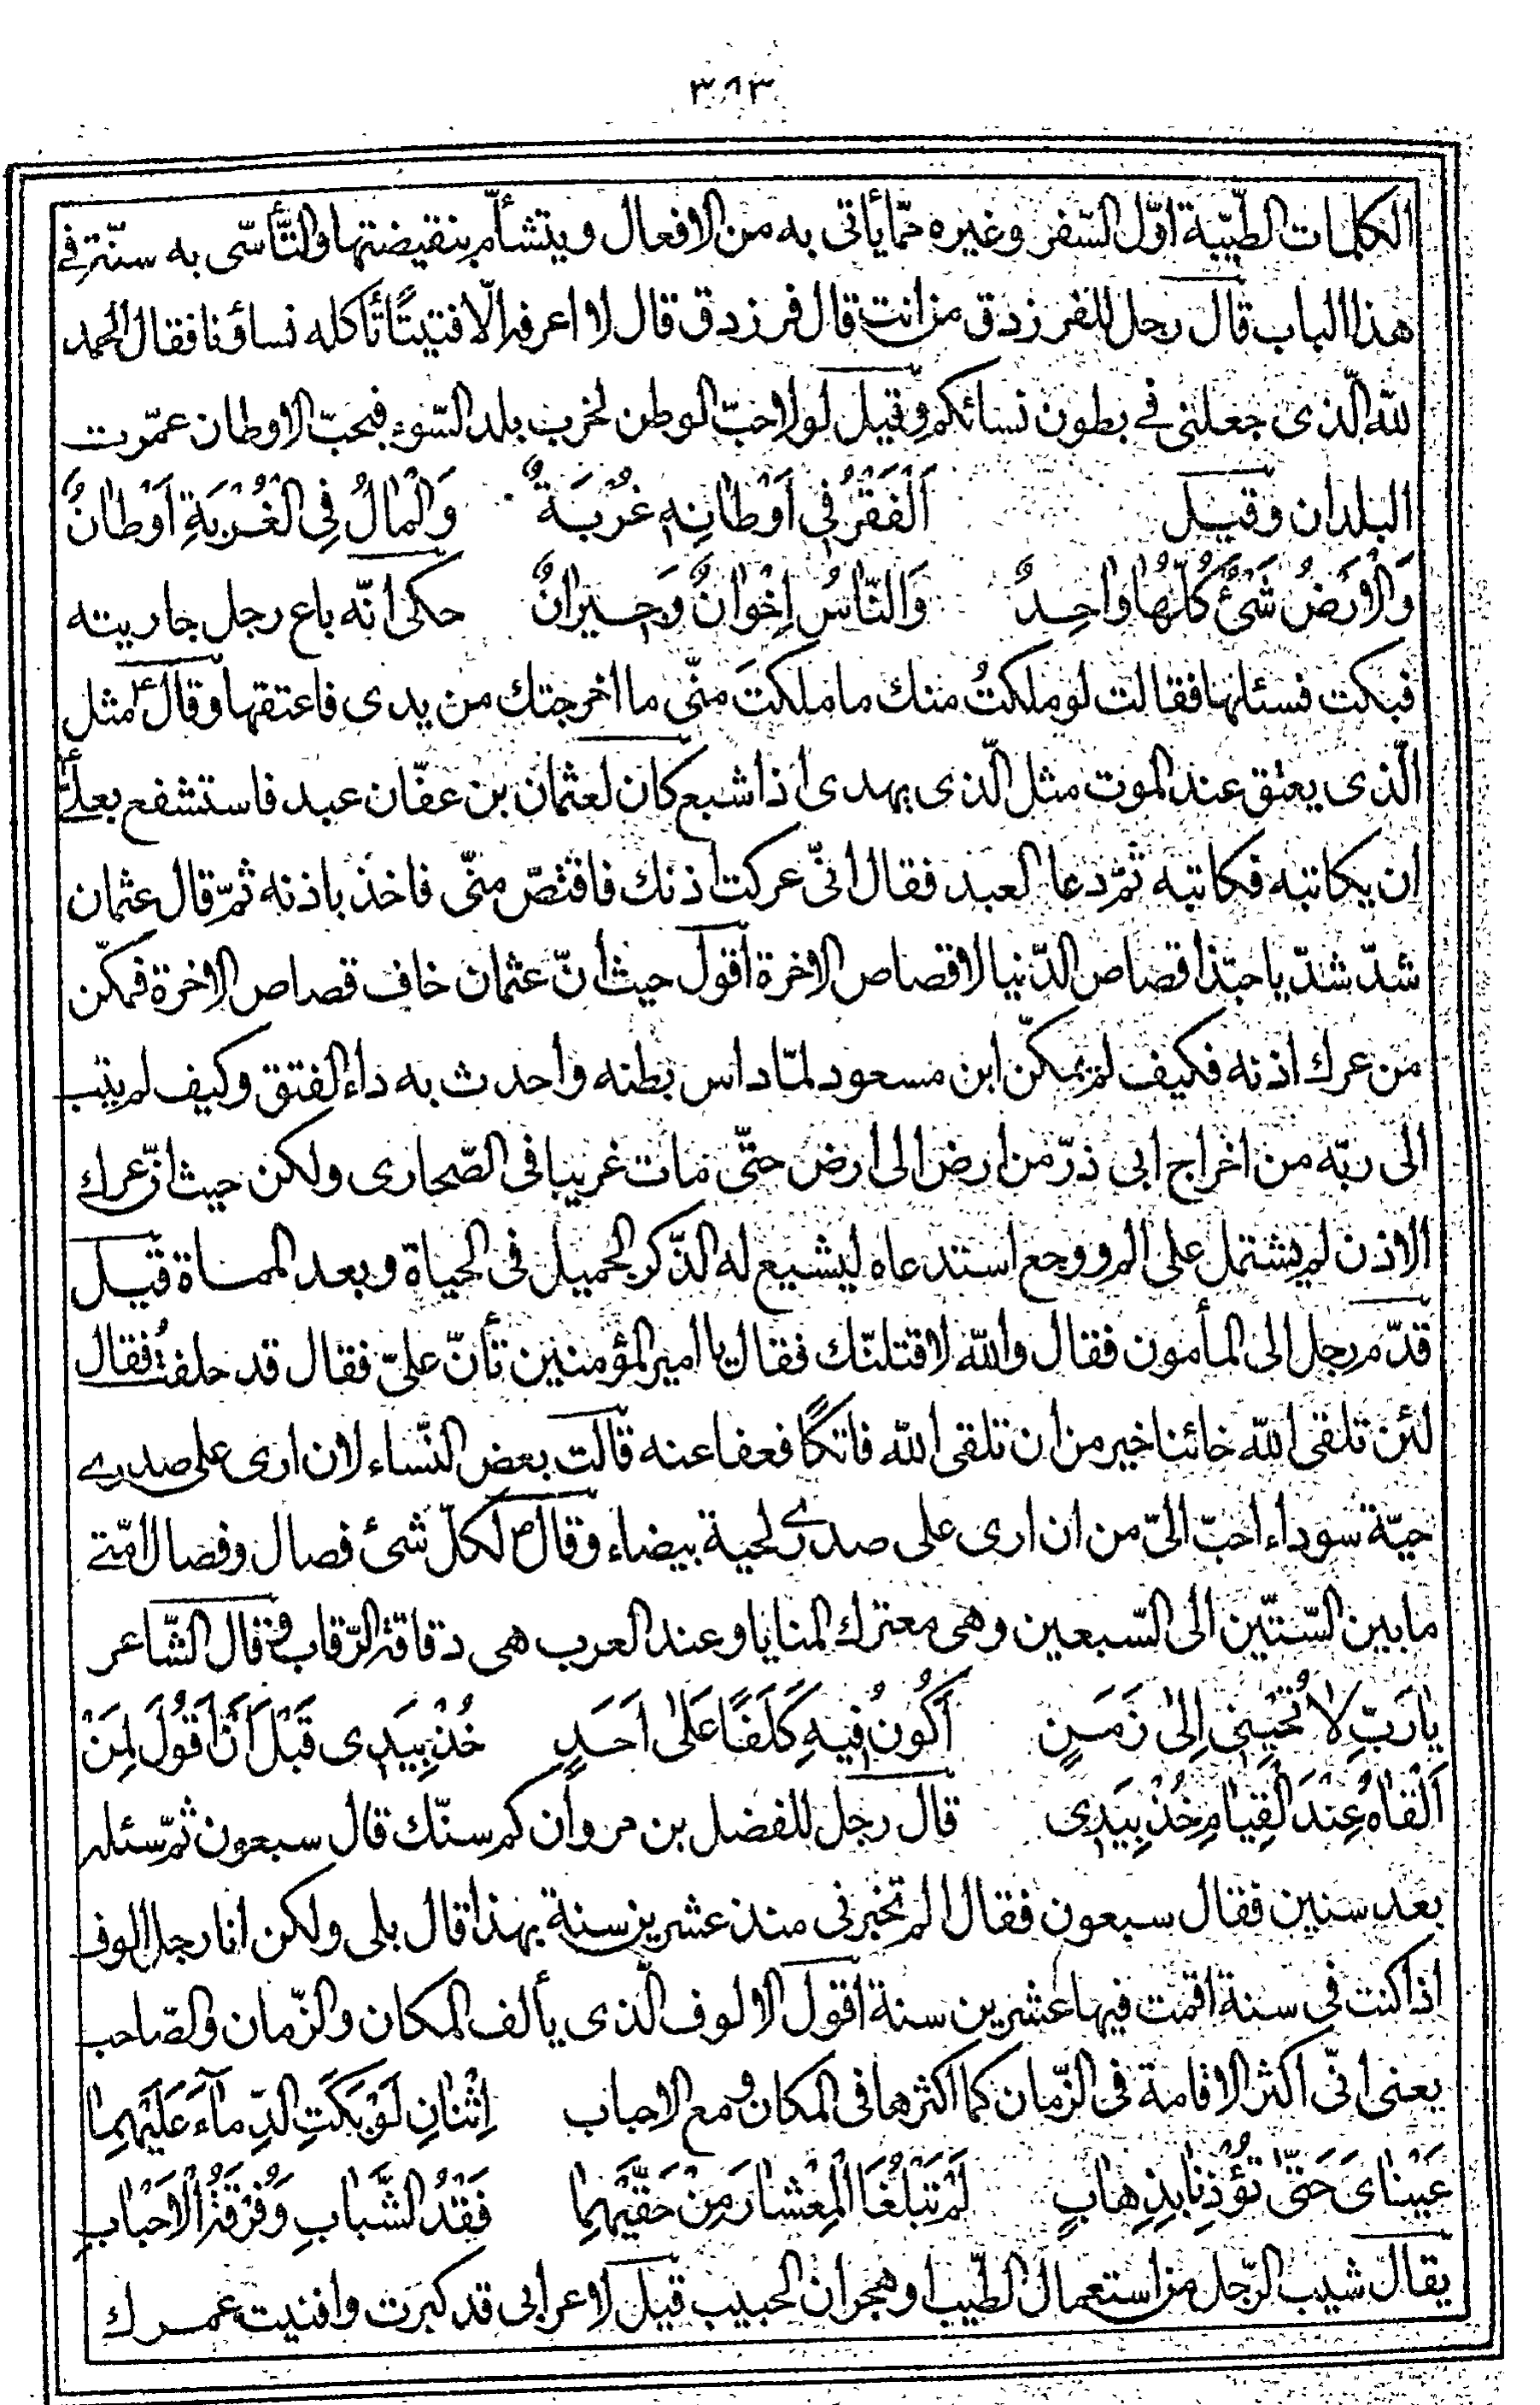 ٣٨٣
الكلمات الطّيّبة اوّل السّفر وغيره ممّا يأتى به من الافعال ويتشأم بنقيضتها والتّأسّى به سنّة فى
هذا الباب قال رجل للفرزدق من انت قال فرزدق قال لا اعرفه الّا فتيتًا تأكله نساؤنا فقال الحمد
للّه الّذى جعلنى فى بطون نسائكم وقيل لولا حبّ الوطن لخرب بلد السّوء فبحبّ الاوطان عمّرت
البلدان وقيل اَلْفَقْرُ فِى اَوْطَانِهِ غُرْبَةٌ وَالْمالُ فِى الْغُرْبَةِ اَوْطانٌ
وَالْاَرْضُ شَئٌ كُلُّها واحِدٌ وَالنّاسُ اِخْوانٌ وَجيرانٌ حكى انّه باع رجل جاريته
فبكت فسئلها فقالت لو ملكتُ منك ما ملكتَ منّى ما اخرجتك من يدى فاعتقها وقال ع مثل
الّذى يعتق عند الموت مثل الّذى يهدى اذا شبع كان لعثمان بن عفّان عبد فاستشفع بعلىّ
ان يكاتبه فكاتبه ثمّ دعا العبد فقال انّى عركت اذنك فاقتصّ منّى فاخذ باذنه ثمّ قال عثمان
شدّ شدّ يا حبّذا قصاص الدّنيا لا قصاص الاخرة اقول حيث انّ عثمان خاف قصاص الاخرة فمكّن
من عرك اذنه فكيف لم يمكّن ابن مسعود لمّا داس بطنه واحدث به داء الفتق وكيف لم يتب
الى ربّه من اخراج ابى ذرّ من ارض الى ارض حتّى مات غريبا فى الصّحارى ولكن حيث انّ عرك
الاذن لم يشتمل على الم ووجع استدعاه ليشيع له الذّكر الجميل فى الحياة وبعد المماة قيل
قدّم رجل الى المأمون فقال واللّه لاقتلنّك فقال يا امير المؤمنين تأنّ علىّ فقال قد حلفتُ فقال
لئن تلقى اللّه خائنا خير من ان تلقى اللّه فاتكًا فعفا عنه قالت بعض النّساء لان ارى على صدرى
حيّة سوداء احبّ الىّ من ان ارى على صدرى لحية بيضاء وقال ص لكلّ شئ فصال وفصال امّتى
ما بين السّتّين الى السّبعين وهى معترك المنايا وعند العرب هى دقاقة الرّقاب قال الشّاعر
يا رَبِّ لا تُحْيِنى اِلى زَمَنٍ اَكُونُ فيهِ كَلَفًا عَلى اَحَدٍ خُذْ بِيَدِى قَبْلَ اَنْ اَقُولَ لِمَنْ
اَلْقاهُ عِنْدَ الْقِيامِ خُذْ بِيَدِى قال رجل للفضل بن مروان كم سنّك قال سبعون ثمّ سئله
بعد سنين فقال سبعون فقال الم تخبرنى منذ عشرين سنة بهذا قال بلى ولكن انا رجل الوف
اذا كنت فى سنة اقمت فيها عشرين سنة اقول الالوف الّذى يألف المكان والزّمان والصّاحب
يعنى انّى اكثر الاقامة فى الزّمان كما اكثرها فى المكان ومع الاحباب اِثْنانِ لَوْ بَكَتِ الدِّمآءَ عَلَيْهِما
عَيْناىَ حَتّى تُؤْذِنا بِذِهابٍ لَمْ تَبْلُغَا الْمِعْشارَ مِنْ حَقَّيْهِما فَقْدُ الشَّبابِ وَفُرْقَةُ الْاَحْبابِ
يقال شيب الرّجل من استعمال الطّيب وهجران الحبيب قيل لاعرابى قد كبرت وافنيت عمرك